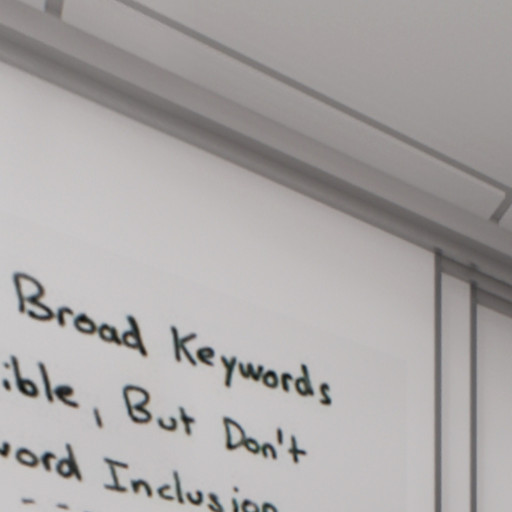 Broad Keywords
ible, But Don't
word Inclusion